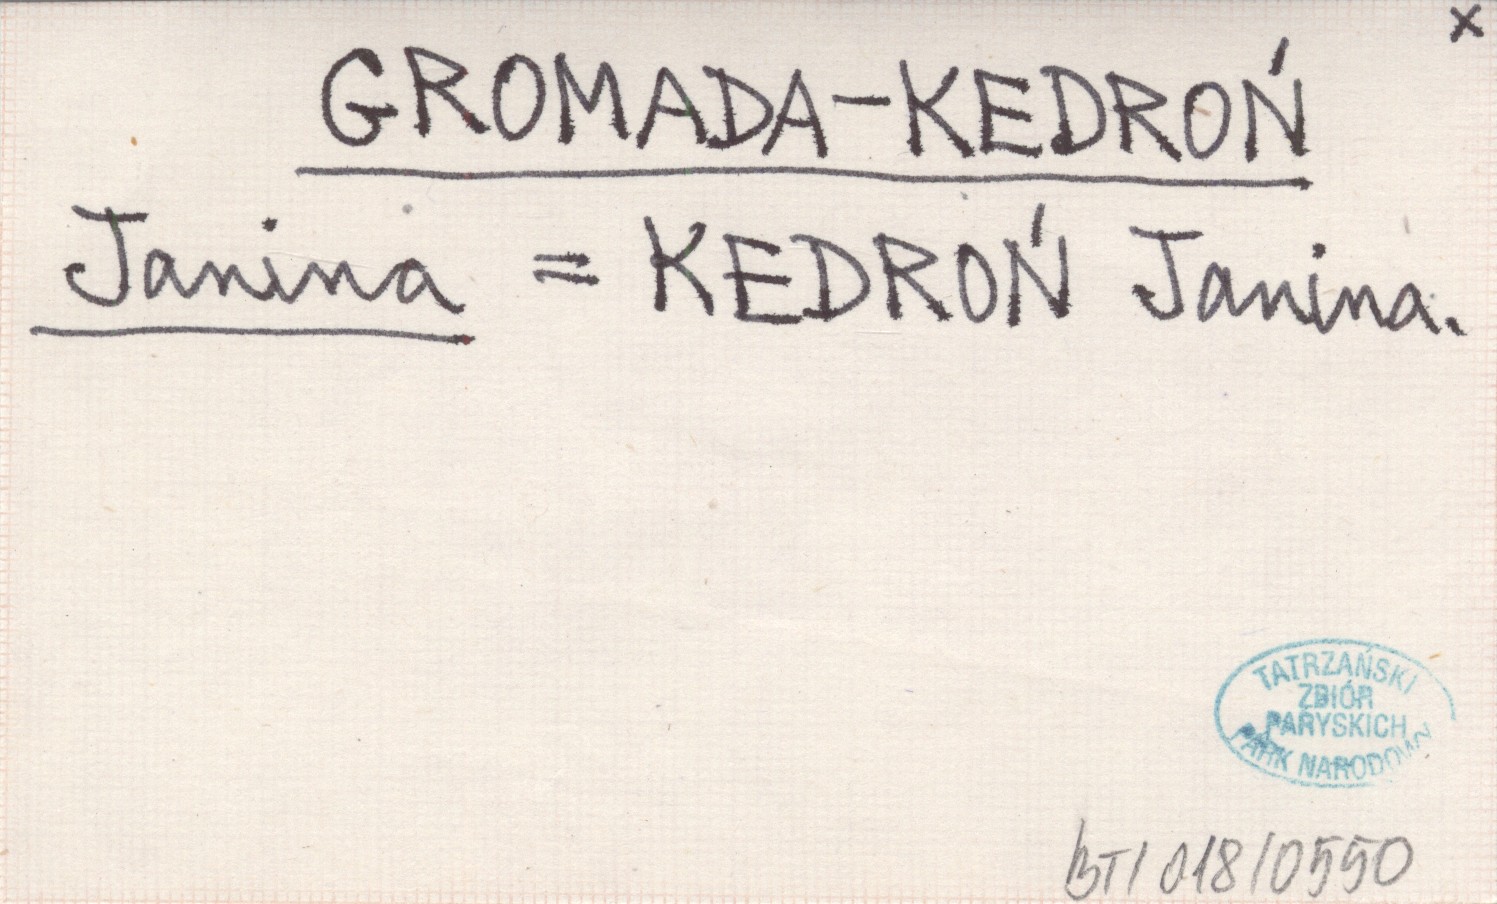 x
GROMADA-KEDROŃ
Janina = KEDROŃ Janina.
TATRZAŃSKI
ZBIÓR
PARYSKICH
PARK NARODOWY
BT/018/0550